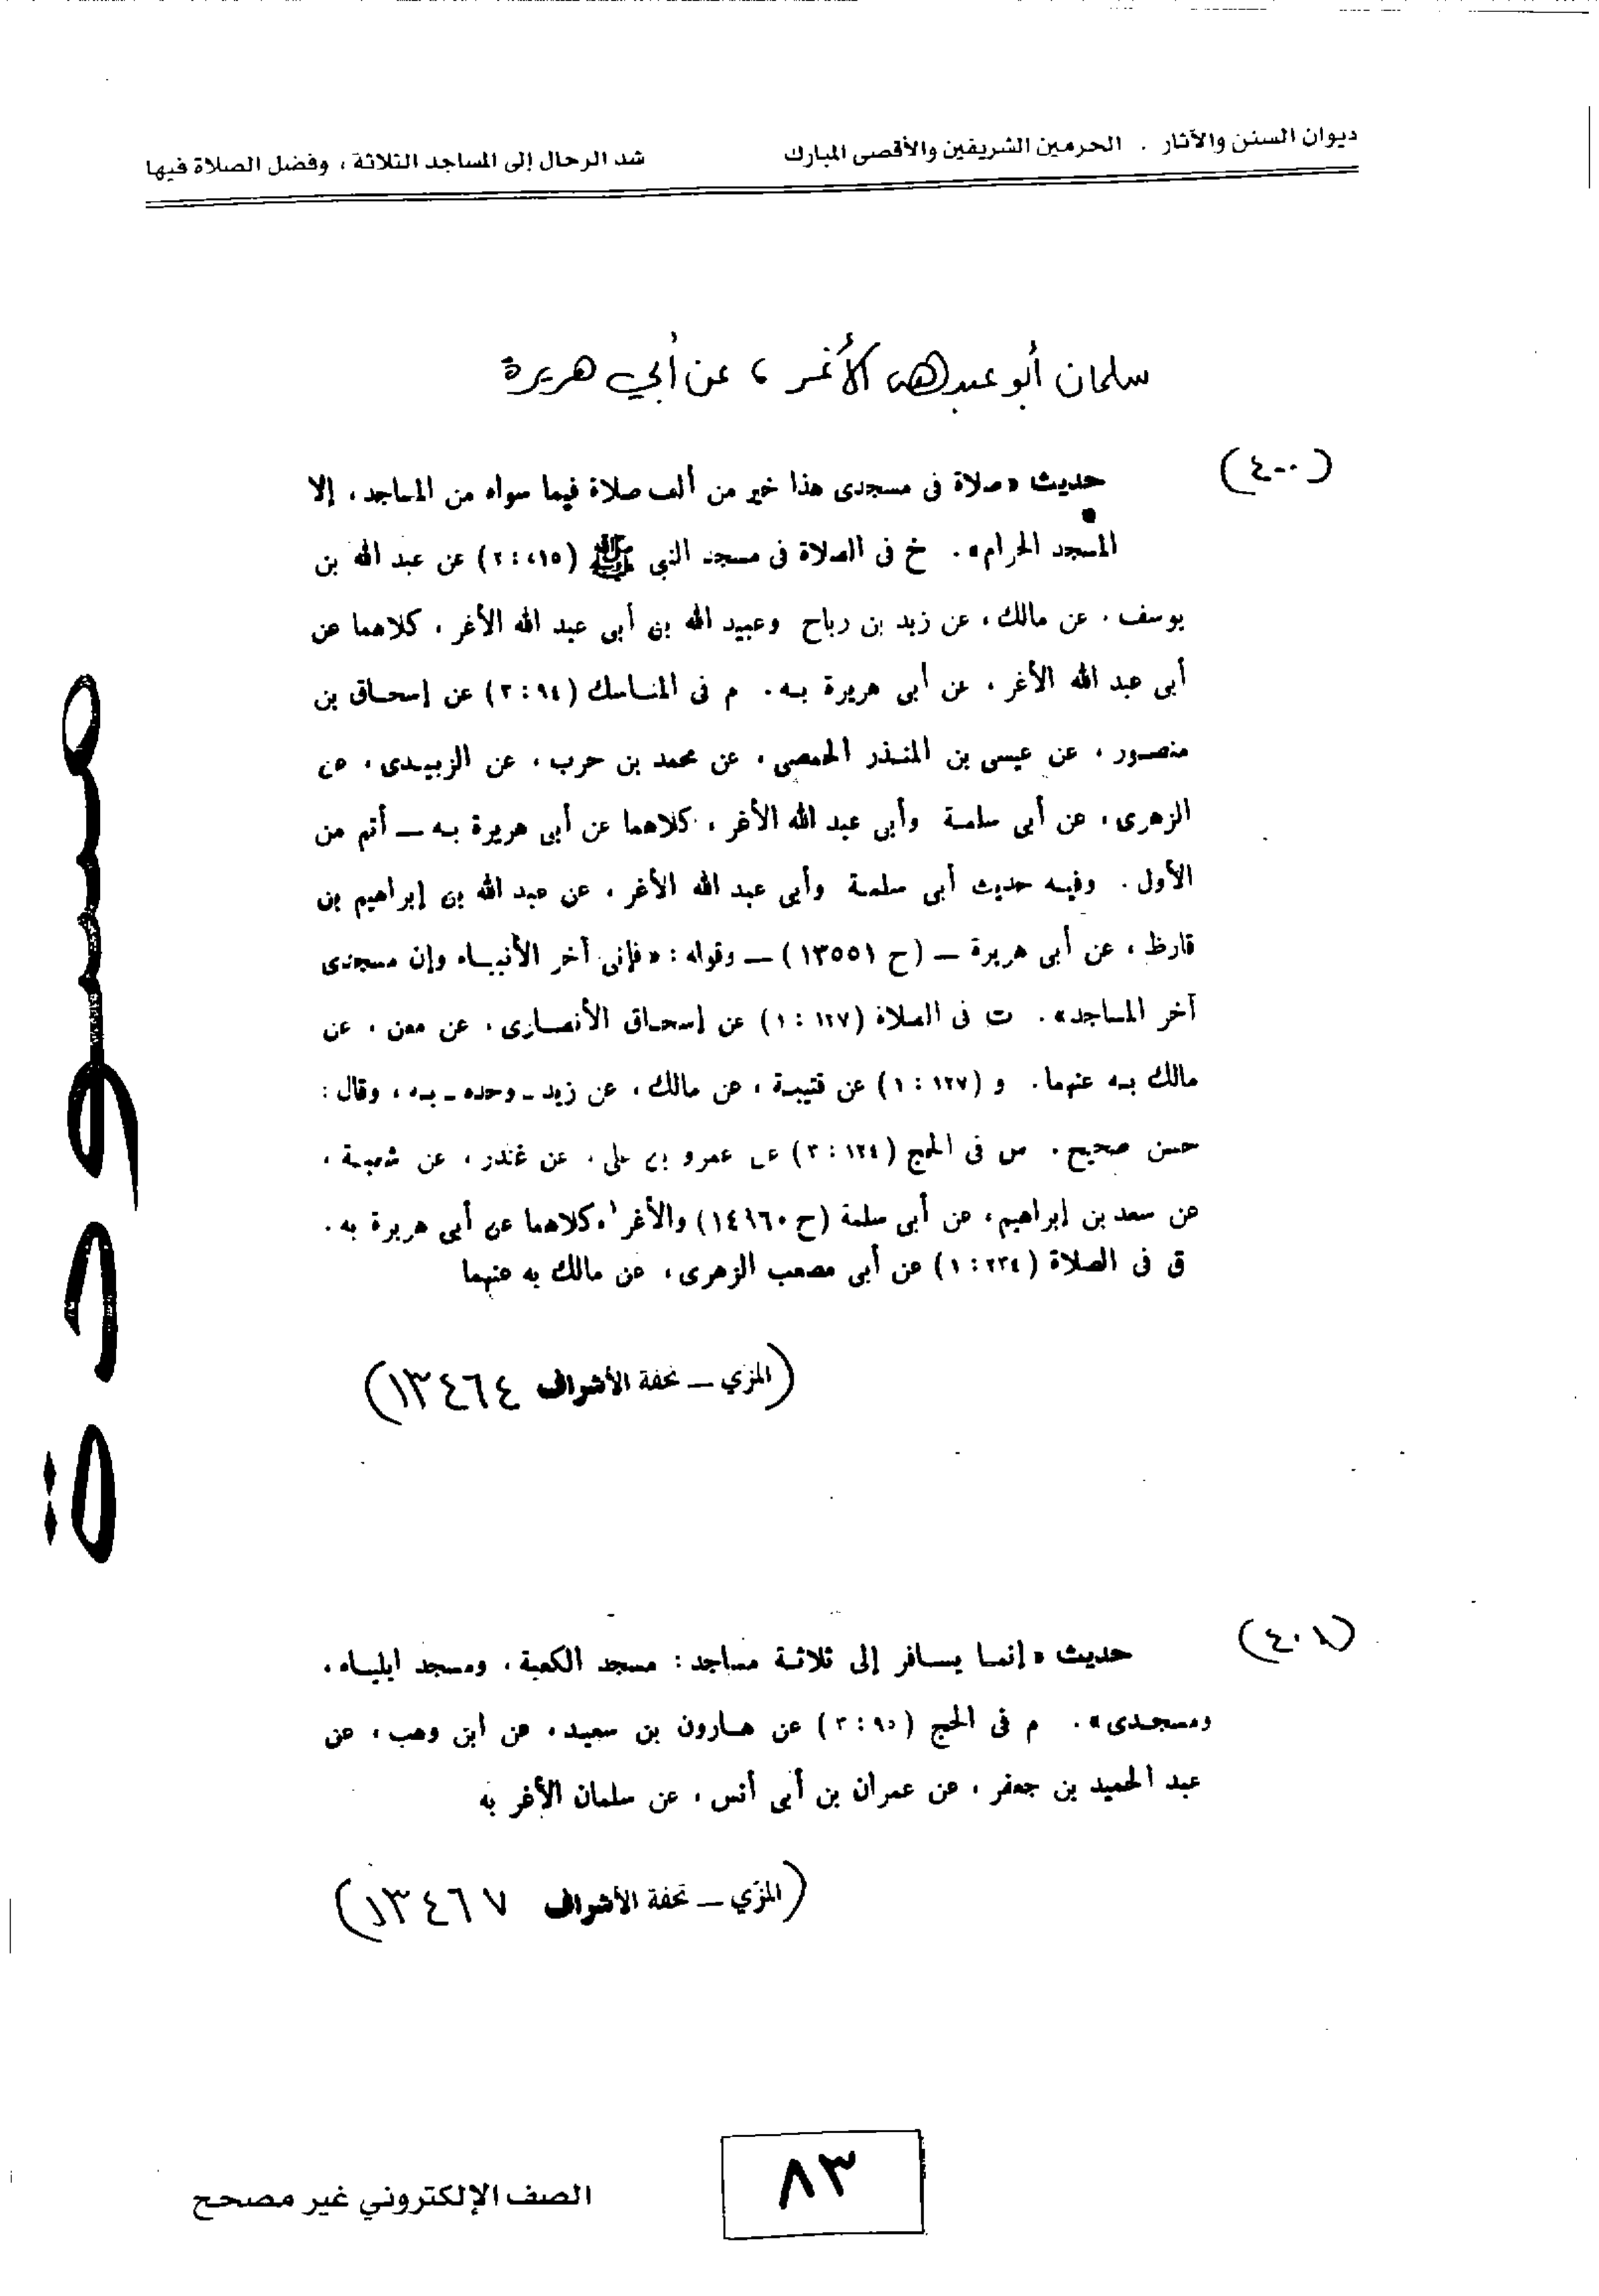 ديوان السنن والآثار . الحرمين الشريفين والأقصى المبارك
شد الرحال إلى المساجد الثلاثة ، وفضل الصلاة فيها
سلمان أبو عبد الله الأغر ، عن أبي هريرة
(٤٠٠)
حديث « صلاة فى مسجدى هذا خير من ألف صلاة فيما سواه من المساجد ، إلا
المسجد الحرام » . خ فى الصلاة فى مسجد النبي ﷺ (٤١٥ : ٢) عن عبد الله بن
يوسف ، عن مالك ، عن زيد بن رباح وعبيد الله بن أبى عبد الله الأغر ، كلاهما عن
أبى عبد الله الأغر ، عن أبى هريرة بـه . م فى المناسك (٩٤ : ٣) عن إسحاق بن
منصور ، عن عيسى بن المنذر الحمصى ، عن محمد بن حرب ، عن الزبيدى ، عن
الزهرى ، عن أبى سلمة وأبى عبد الله الأغر ، كلاهما عن أبى هريرة بـه — أتم من
الأول . وفيه حديث أبى سلمة وأبى عبد الله الأغر ، عن عبد الله بن إبراهيم بن
قارظ ، عن أبى هريرة — (ح ١٣٥٥١) — وقوله : « فإنى آخر الأنبياء وإن مسجدى
آخر المساجد » . ت فى الصلاة (١٢٧ : ١) عن إسحاق الأنصارى ، عن معن ، عن
مالك بـه عنهما . و (١٢٧ : ١) عن قتيبة ، عن مالك ، عن زيد ـ وحده ـ بـه ، وقال :
حسن صحيح . س فى الحج (١٢٤ : ٣) عن عمرو بن على ، عن غندر ، عن شعبة ،
عن سعد بن إبراهيم ، عن أبى سلمة (ح ١٤٩٦٠) والأغر ، كلاهما عن أبى هريرة به .
ق فى الصلاة (٢٣٤ : ١) عن أبى مصعب الزهرى ، عن مالك به عنهما
(المزي — تحفة الأشراف ١٣٤٦٤)
(٤٠١)
حديث « إنما يسافر إلى ثلاثة مساجد : مسجد الكعبة ، ومسجد ايلياء ،
ومسجدى » . م فى الحج (٩٥ : ٣) عن هارون بن سعيد ، عن ابن وهب ، عن
عبد الحميد بن جعفر ، عن عمران بن أبى أنس ، عن سلمان الأغر به
(المزّي — تحفة الأشراف ١٣٤٦٧)
مسودة
٨٣
الصف الإلكتروني غير مصحح